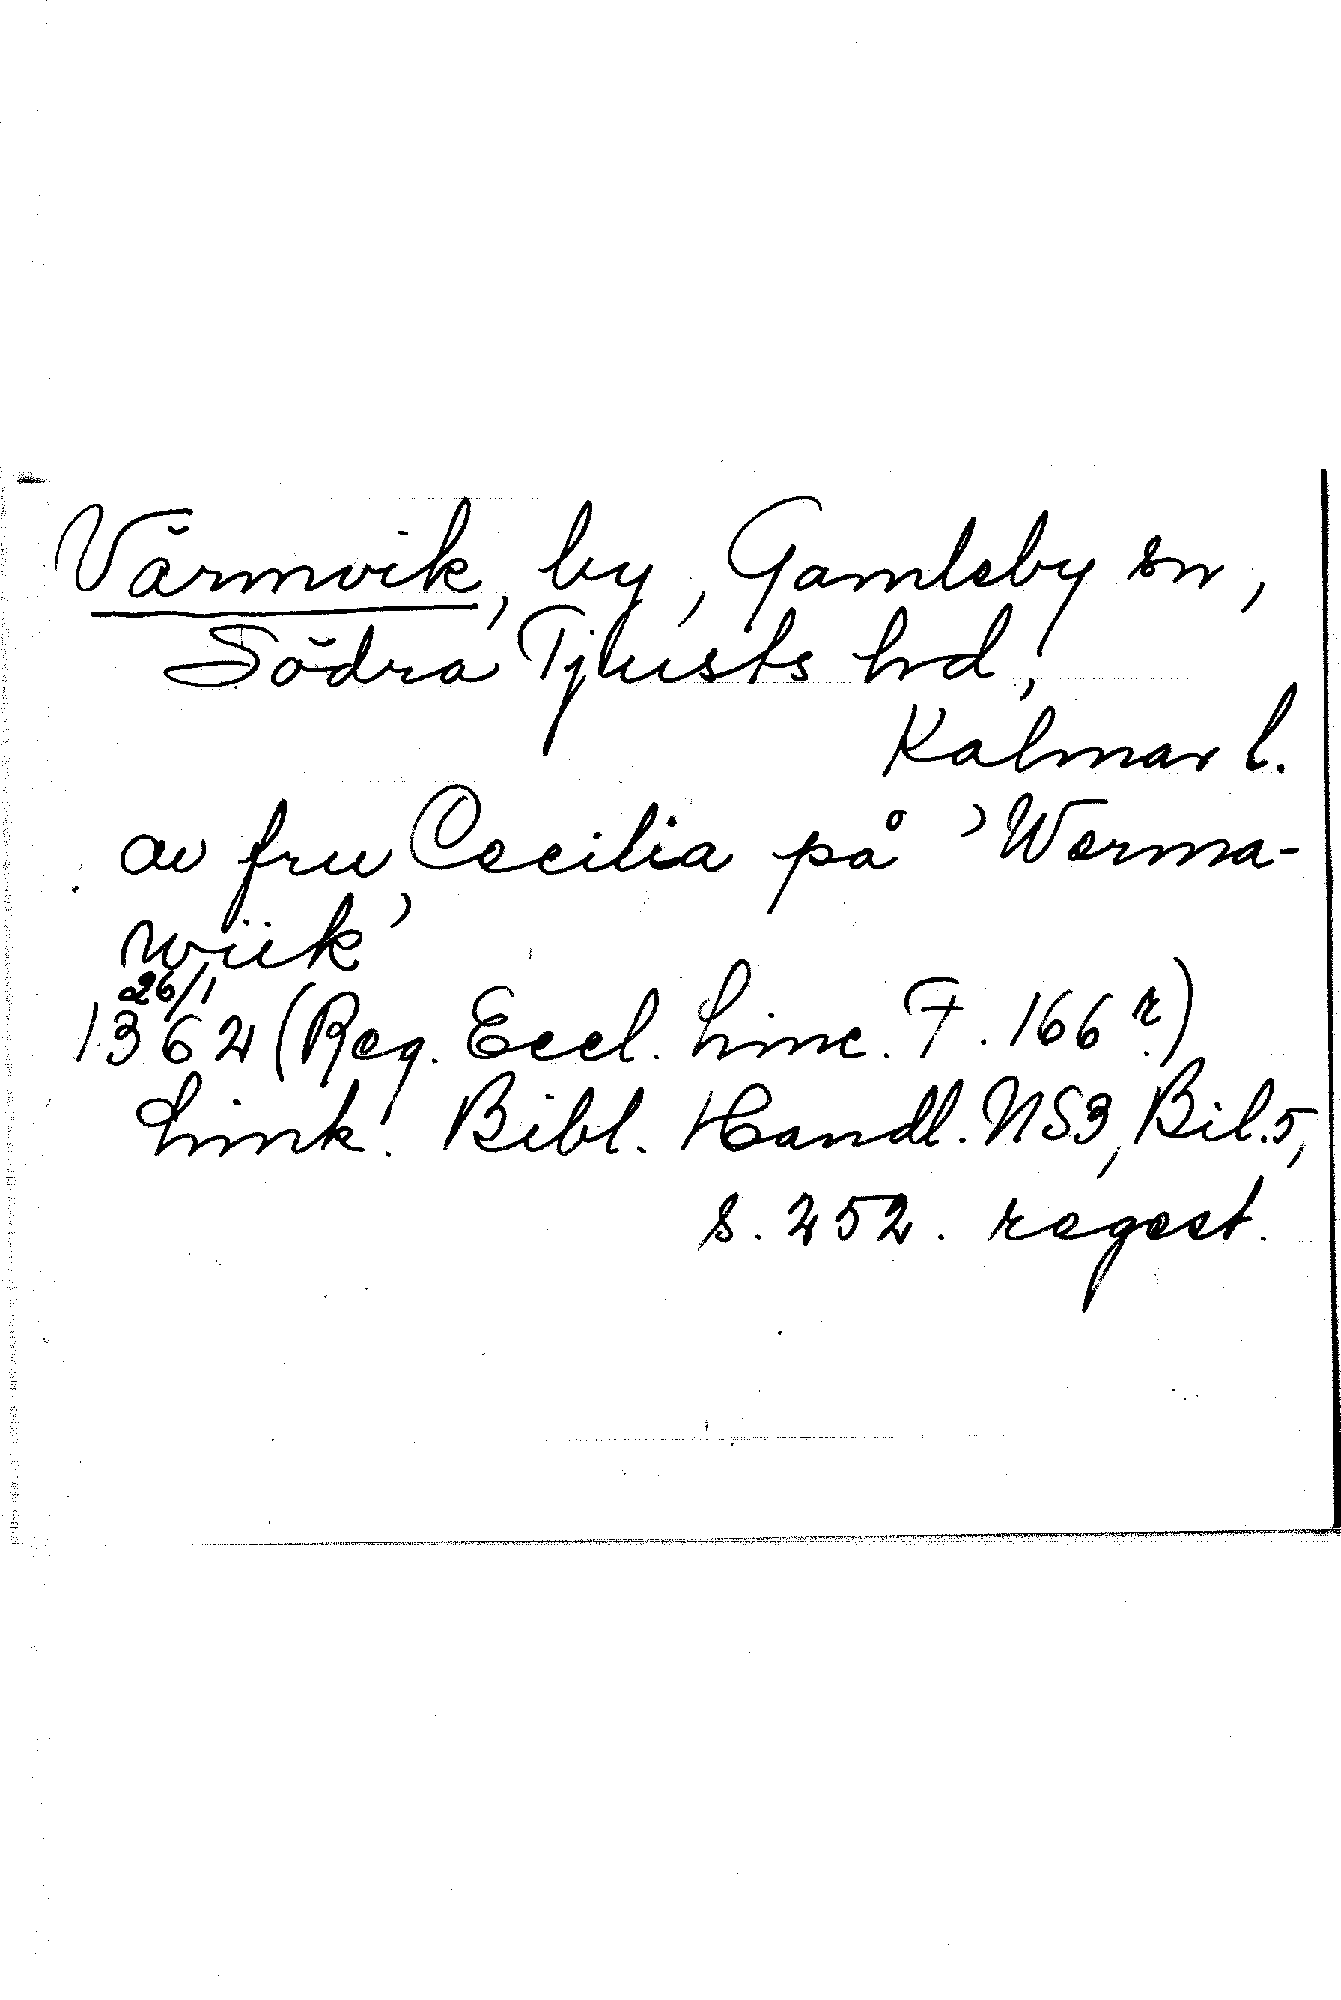 Värmvik, by, Gamleby sn,
Södra Tjusts hd,
Kalmar l.
av fru Cecilia på 'Werma-
wiik'
26/1
1362 (Reg. Eccl. Linc. F. 166 r.)
Link. Bibl. Handl. NS3, Bil. 5,
s. 252. regest.